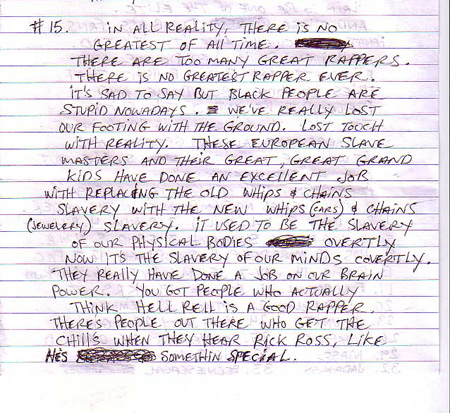 #15. IN ALL REALITY, THERE IS NO
GREATEST OF ALL TIME.
THERE ARE TOO MANY GREAT RAPPERS.
THERE IS NO GREATEST RAPPER EVER.
IT'S SAD TO SAY BUT BLACK PEOPLE ARE
STUPID NOWADAYS. WE'VE REALLY LOST
OUR FOOTING WITH THE GROUND. LOST TOUCH
WITH REALITY. THESE EUROPEAN SLAVE
MASTERS AND THEIR GREAT, GREAT GRAND
KIDS HAVE DONE AN EXCELLENT JOB
WITH REPLACING THE OLD WHIPS & CHAINS
SLAVERY WITH THE NEW WHIPS (CARS) & CHAINS
(JEWELERY) SLAVERY. IT USED TO BE THE SLAVERY
OF OUR PHYSICAL BODIES OVERTLY
NOW IT'S THE SLAVERY OF OUR MINDS COVERTLY.
THEY REALLY HAVE DONE A JOB ON OUR BRAIN
POWER. YOU GOT PEOPLE WHO ACTUALLY
THINK HELL RELL IS A GOOD RAPPER.
THERE'S PEOPLE OUT THERE WHO GET THE
CHILLS WHEN THEY HEAR RICK ROSS, LIKE
HE'S SOMETHIN SPECIAL.